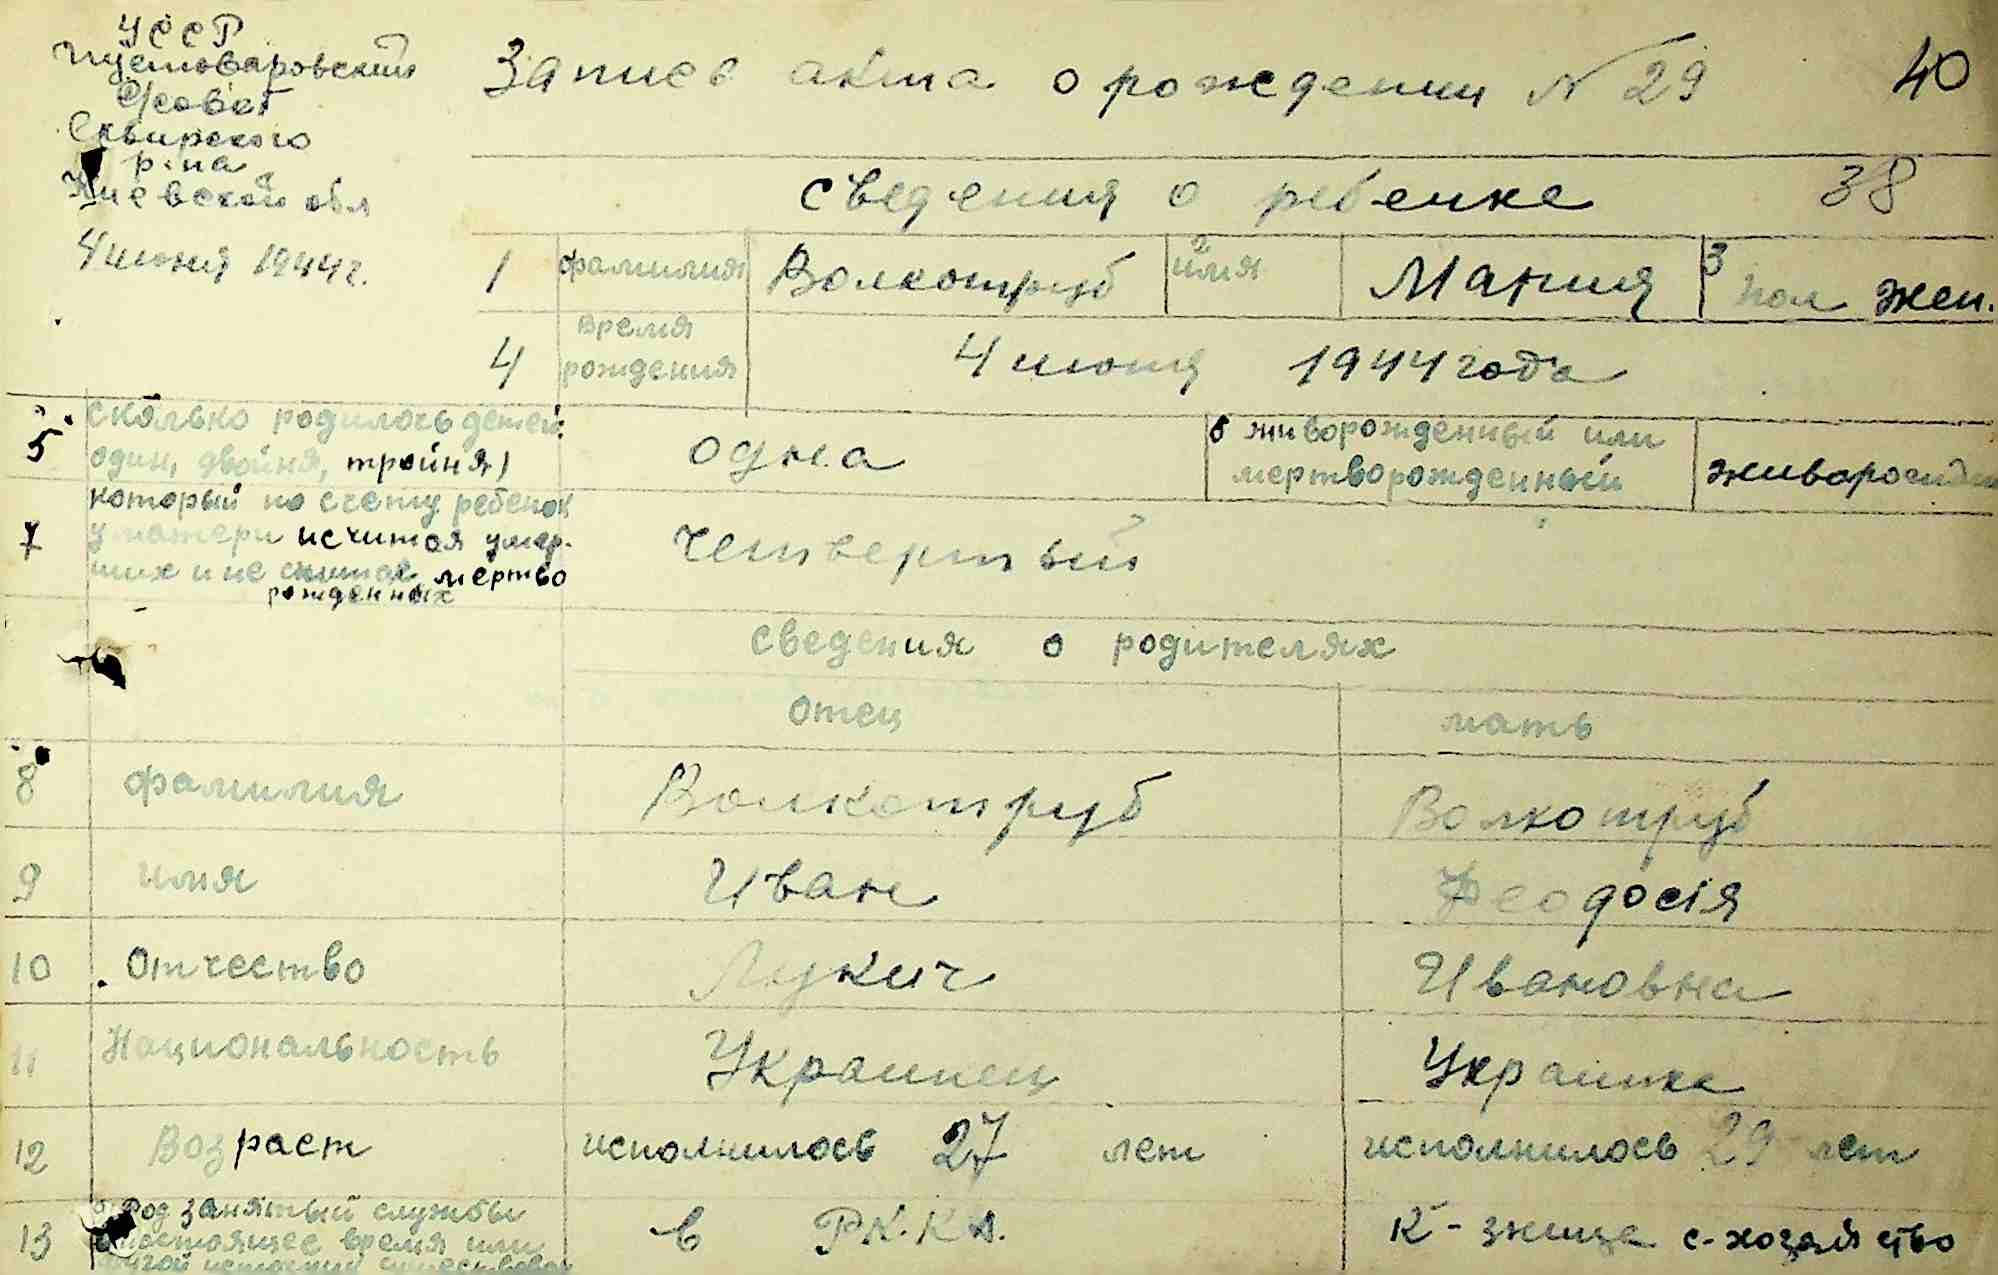 УССР
Пустоваровский
С/совет
Сквирского
р-на
Киевской обл
4 июня 1944 г.
Запись акта о рождении N 29
40
сведения о ребенке
38
1 фамилия Волкотруб 2 имя Мария 3 пол жен.
4 время рождения 4 июня 1944 года
5 сколько родилось детей
один, двойня, тройня)
одна
6 живорожденный или
мертворожденный
7 который по счету ребенок
у матери исчитая умер-
ших и не считая мертво
рожденных
четвертый
сведения о родителях
отец мать
8 фамилия Волкотруб Волкотруб
9 имя Иван Феодосія
10 Отчество Лукич Ивановна
11 Национальность Украинец Украинка
12 Возраст исполнилось 27 лет исполнилось 29 лет
13 Род занятый службы
в настоящее время или
в РК.КА. к-зница с-хозяйство